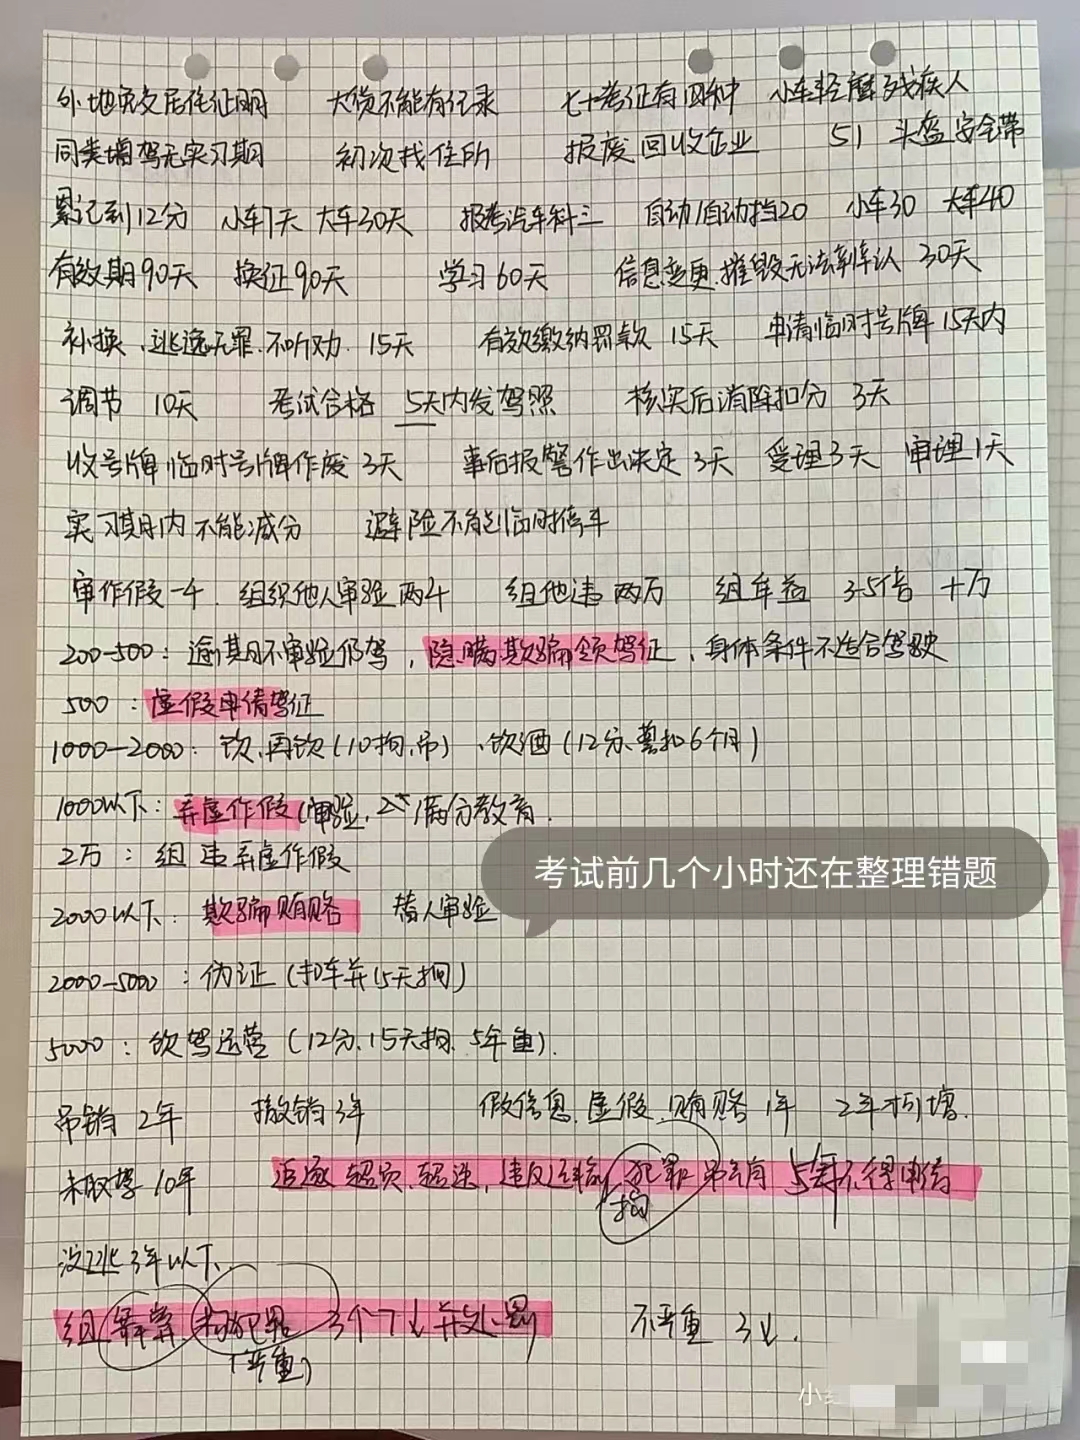 外地免交居住证明 大货不能有记录 七十考证有四种 小车轻摩残疾人
同类增驾无实习期 初次找住所 报废回收企业 51 头盔安全带
累记到12分 小车7天 大车30天 报考汽车科三 自动/自动挡20 小车30 大车40
有效期90天 换证90天 学习60天 信息变更.摧毁无法辨认 30天
补换、逃逸无罪.不听劝. 15天 有效缴纳罚款 15天 申请临时号牌15天内
调节 10天 考试合格 5天内发驾照 核实后消除扣分 3天
收号牌临时号牌作废 3天 事后报警作出决定 3天 受理3天 审理1天
实习期内不能减分 避险不能临时停车
审作假一千. 组织他人审验两千 组他违 两万 组牟益 3-5倍 十万
200-500: 逾期不审验仍驾, 隐瞒欺骗领驾证、身体条件不适合驾驶
500 : 虚假申请驾证
1000-2000: 饮、再饮(10拘.吊)、饮酒(12分、暂扣6个月)
1000以下: 弄虚作假(审验. 满分教育.
2万 : 组 违弄虚作假
考试前几个小时还在整理错题
2000以下: 欺骗贿赂 替人审验
2000-5000 : 伪证 (扣车并15天拘)
5000 : 饮驾运营 (12分.15天拘. 5年重).
吊销 2年 撤销3年 假信息.虚假.贿赂 1年 2年不可增.
未取 10年 追逐 超员.超速, 违反 犯罪 吊 5年不得申请
拘
没 3年以下.
组 3个7↓并处罚 不严重 3↓.
(严重)
小